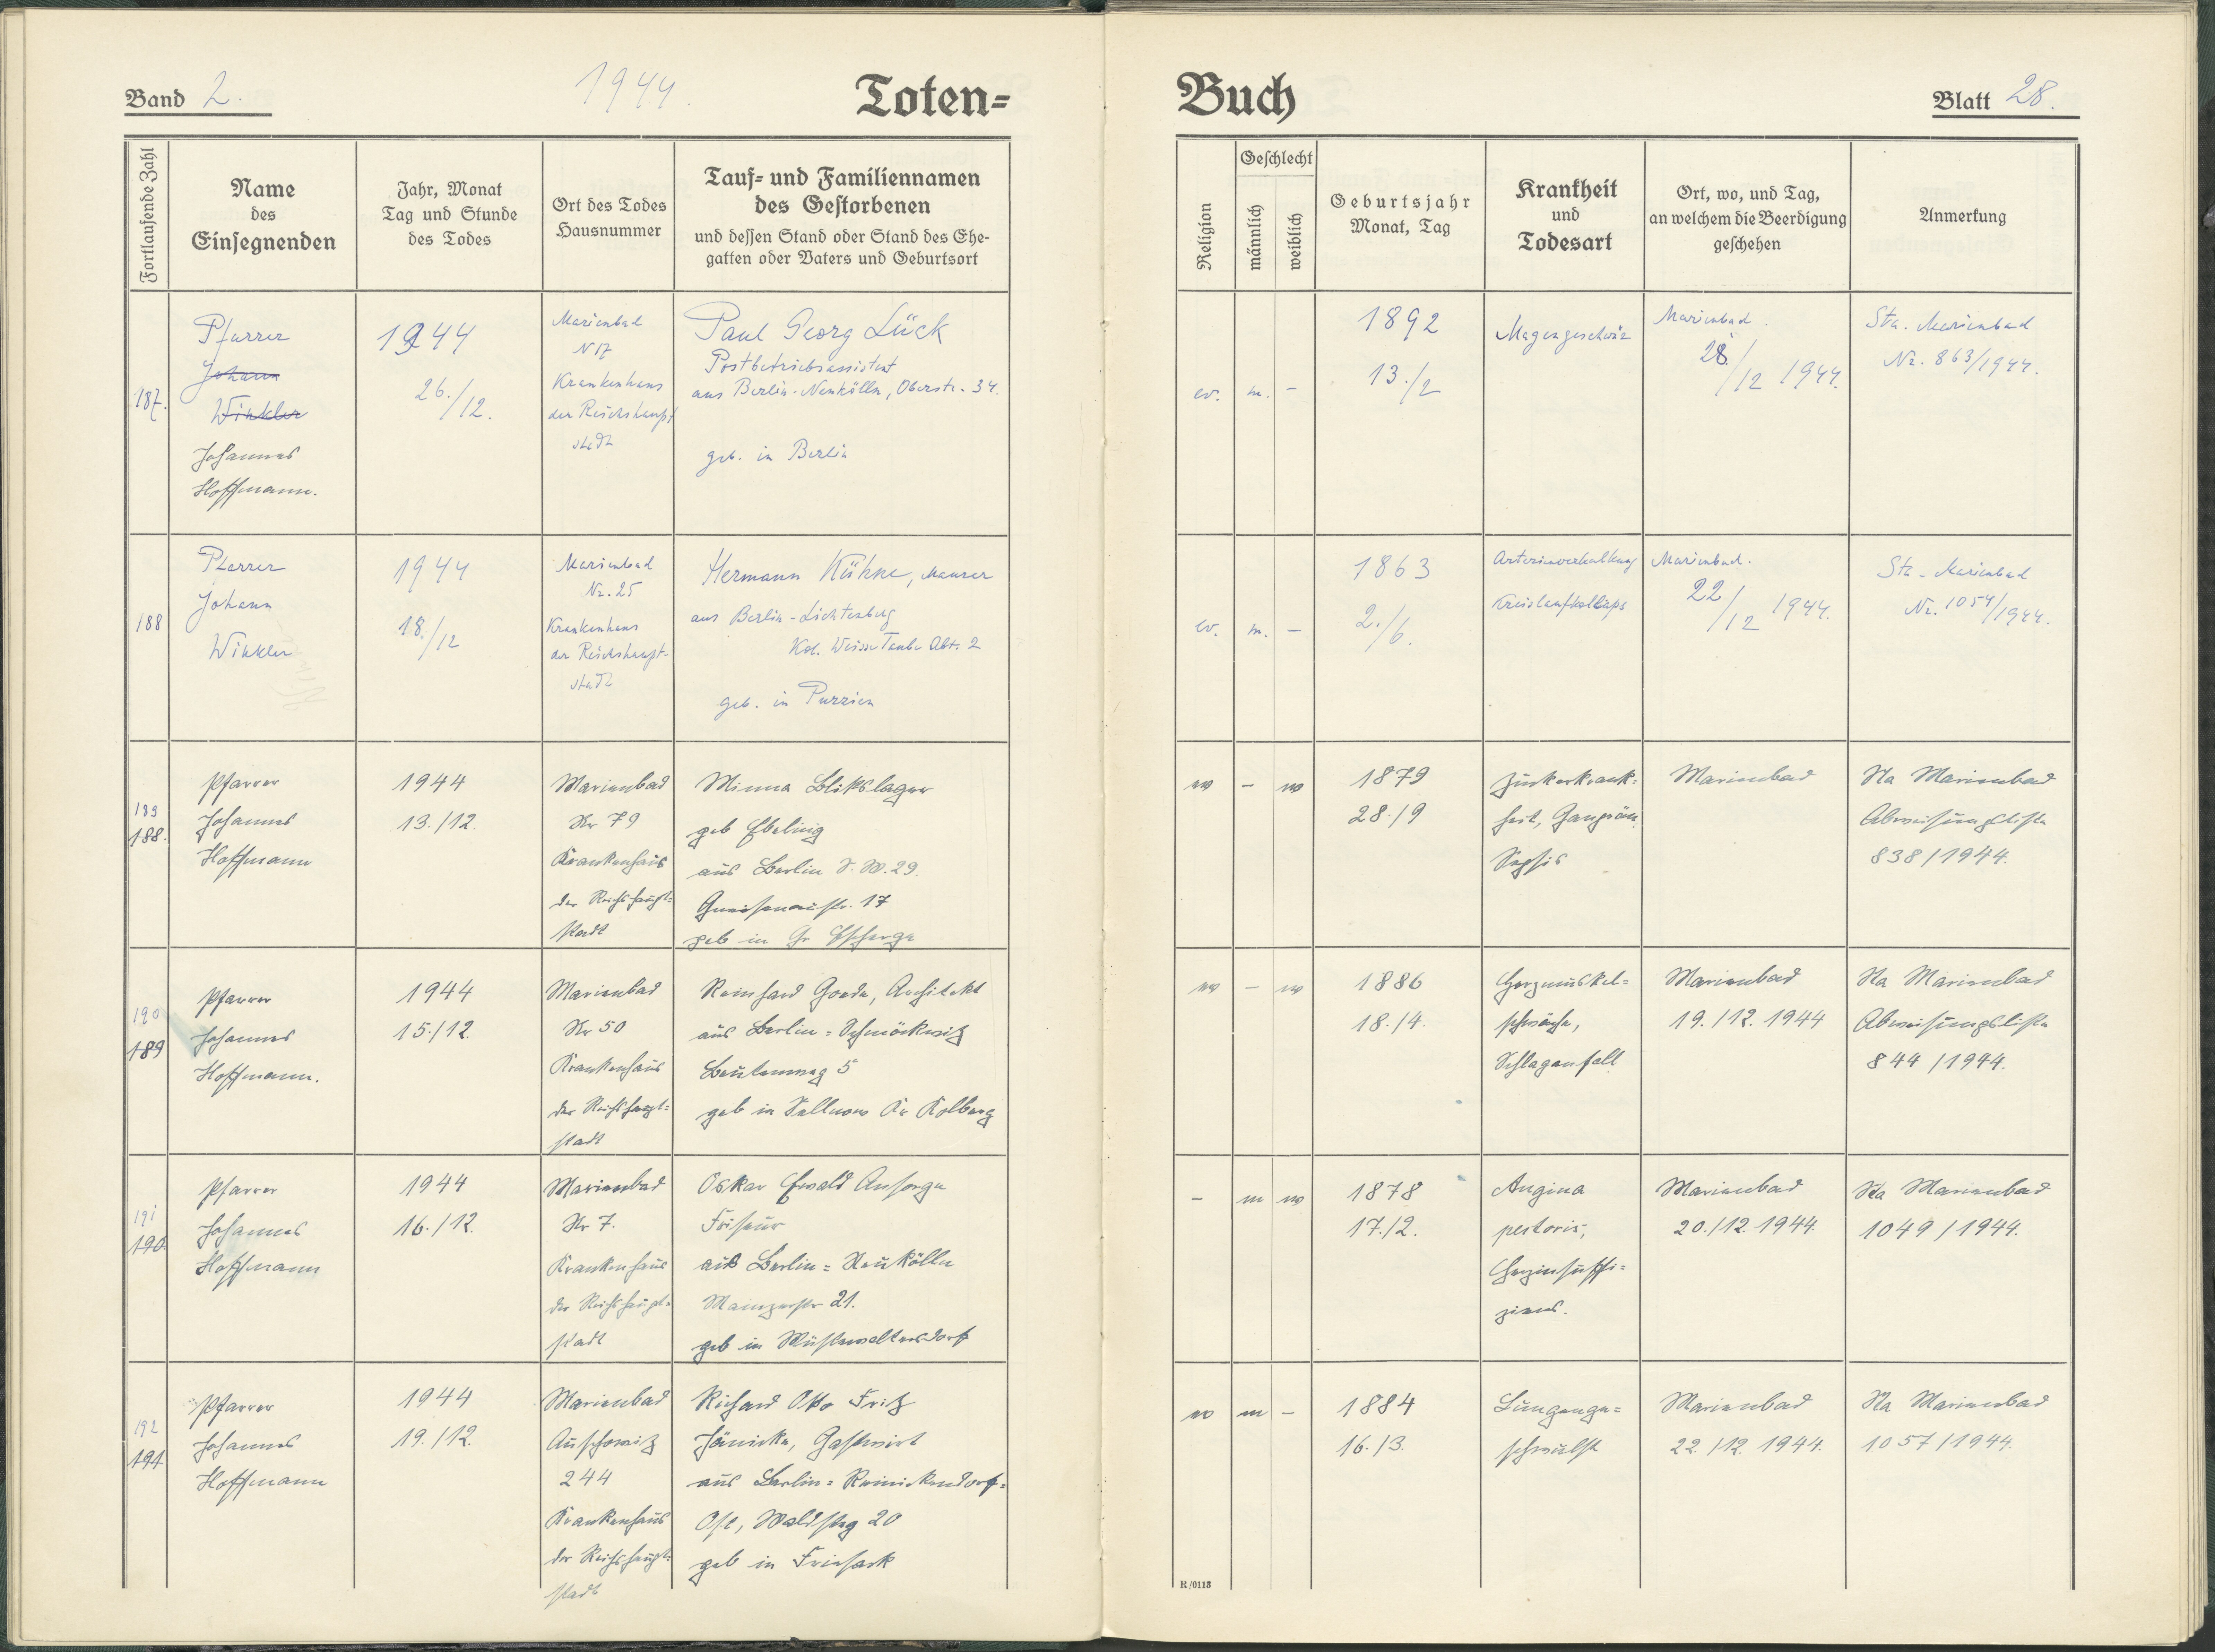 Band 2.
1944.
Toten=
Buch
Blatt 28.
Fortlaufende Zahl
Name
des
Einsegnenden
Jahr, Monat
Tag und Stunde
des Todes
Ort des Todes
Hausnummer
Tauf= und Familiennamen
des Gestorbenen
und dessen Stand oder Stand des Ehe-
gatten oder Vaters und Geburtsort
Religion
Geschlecht
männlich
weiblich
Geburtsjahr
Monat, Tag
Krankheit
und
Todesart
Ort, wo, und Tag,
an welchem die Beerdigung
geschehen
Anmerkung
187.
Pfarrer
Johann
Winkler
Johannes
Hoffmann.
1944
26./12.
Marienbad
N 17
Krankenhaus
der Reichshaupt
stadt
Paul Georg Lück
Postbetriebsassistent
aus Berlin-Neukölln, Oberstr. 34.
geb. in Berlin
ev.
m.
-
1892
13./2
Magengeschwür
Marienbad.
28./12 1944.
Sta. Marienbad
Nr. 863/1944.
188
Pfarrer
Johann
Winkler
1944
18./12
Marienbad
Nr. 25
Krankenhaus
der Reichshaupt-
stadt
Hermann Kühne, Maurer
aus Berlin-Lichtenberg
Kol. Weisse Taube Abt. 2
geb. in Purzien
ev.
m.
-
1863
2./6.
Arterienverkalkung
Kreislaufkollaps
Marienbad.
22/12 1944.
Sta. Marienbad
Nr. 1054/1944.
189
188.
Pfarrer
Johannes
Hoffmann
1944
13./12.
Marienbad
Nr 79
Krankenhaus
der Reichshaupt=
stadt
Minna Blikslager
geb Ebeling
aus Berlin S.W.29.
Gneisenaustr. 17
geb in Gr
-
w
1879
28./9
Zuckerkrank=
heit, Gangrän
Sepsis
Marienbad
Sta Marienbad
838/1944.
190
189
Pfarrer
Johannes
Hoffmann.
1944
15./12.
Marienbad
Nr 50
Krankenhaus
der Reichshaupt=
stadt
Reinhard Goede, Architekt
aus Berlin=Schmöckwitz
5
geb in Kr Kolberg
-
w
1886
18./4.
Herzmuskel=
schwäche,
Schlaganfall
Marienbad
19./12. 1944
Sta Marienbad
844/1944.
191
190
Pfarrer
Johannes
Hoffmann
1944
16./12.
Marienbad
Nr 7.
Krankenhaus
der Reichshaupt=
stadt
Oskar Ewald Ansorge
Friseur
aus Berlin=Neukölln
Mainzerstr 21.
geb in Wüstewaltersdorf
-
m
w
1878
17./2.
Angina
pectoris,
Herzinsuffi=
zienz.
Marienbad
20./12. 1944.
Sta Marienbad
1049/1944.
192
191
Pfarrer
Johannes
Hoffmann
1944
19./12.
Marienbad
Auschowitz
244
Krankenhaus
der Reichshaupt=
stadt
Richard Otto Fritz
Jänicke, Gastwirt
aus Berlin=Reinickendorf=
Ost, Waldsteg 20
geb in Friesack
m
-
1884
16./3.
Lungenge=
schwulst
Marienbad
22./12. 1944.
Sta Marienbad
1057/1944.
R/0113